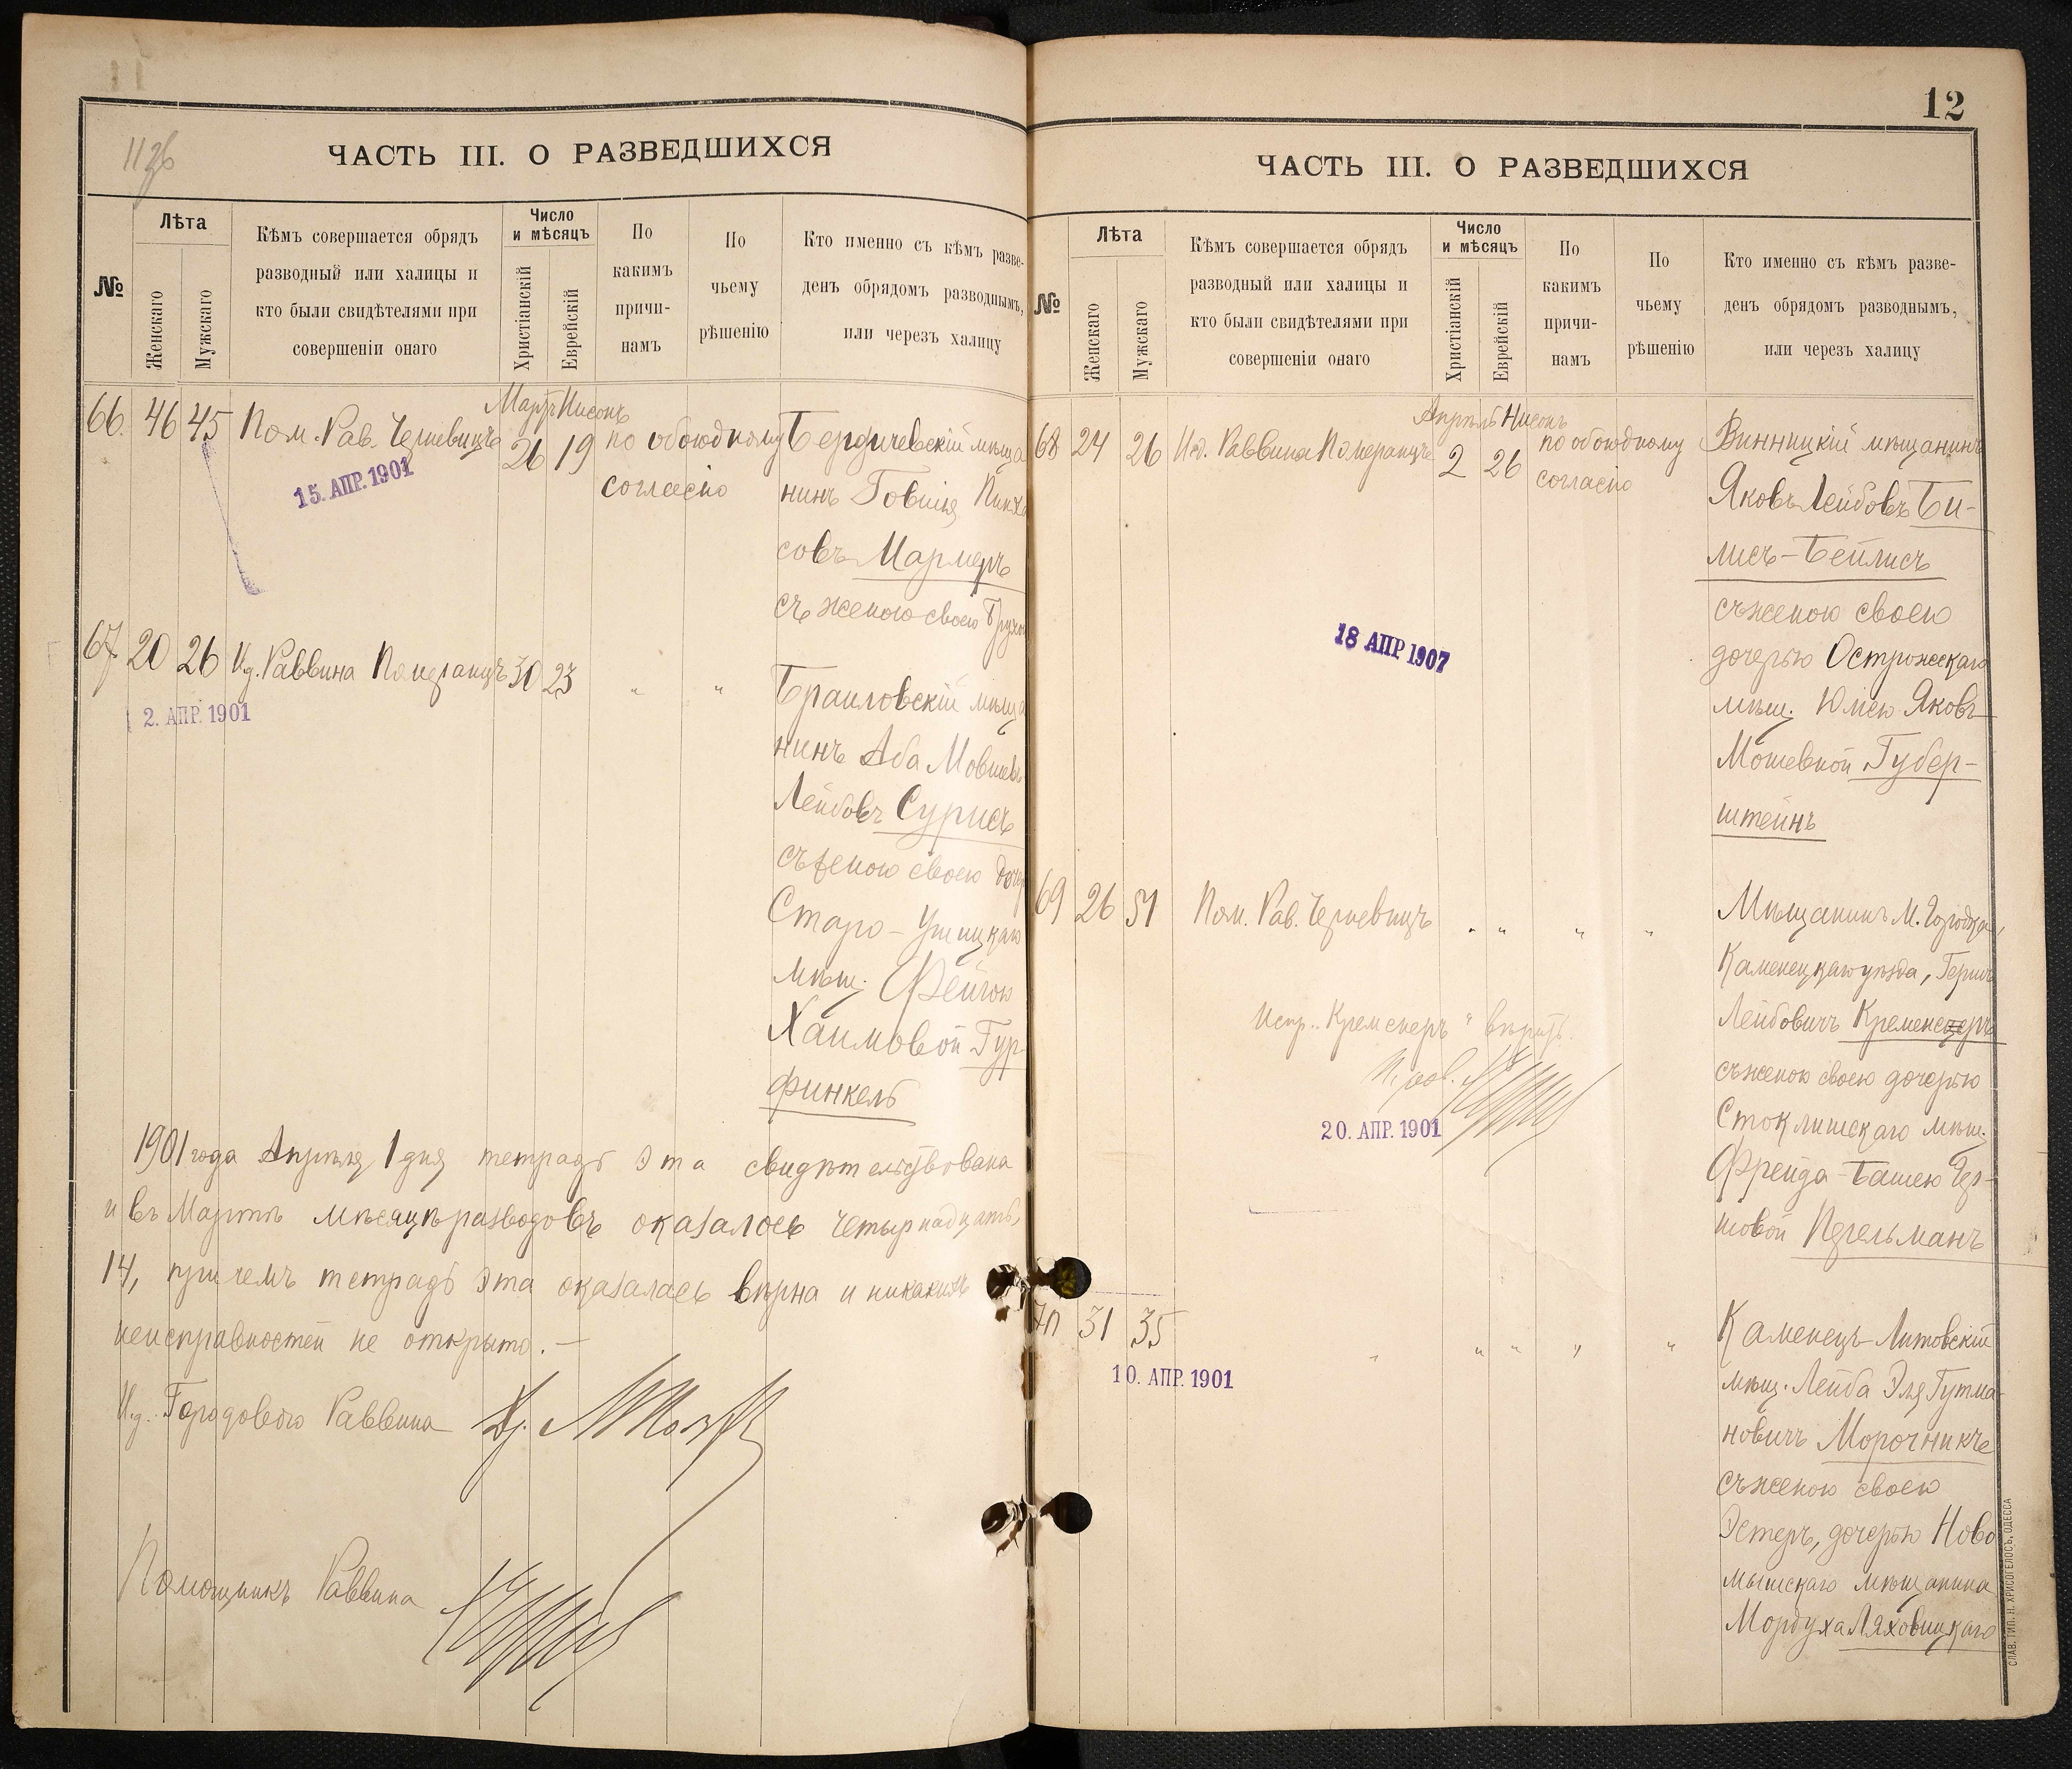 11 об
ЧАСТЬ III. О РАЗВЕДШИХСЯ
№
Лѣта
Женскаго
Мужскаго
Кѣмъ совершается обрядъ
разводный или халицы и
кто были свидѣтелями при
совершеніи онаго
Число
и мѣсяцъ
Христіанскій
Еврейскій
По
какимъ
причи-
намъ
По
чьему
рѣшенію
Кто именно съ кѣмъ разве-
денъ обрядомъ разводнымъ,
или черезъ халицу
Мартъ Нисонъ
66. 46 45 Пом. Рав. Черневицъ 26 19 по обоюдному
согласію
15. АПР. 1901
Бердичевскій мѣща
нинъ Говшія Пинха
совъ Мармеръ
съ женою своею
67 20 26 И.д. Раввина Померанцъ 30 23 " "
2. АПР. 1901
Браиловскій мѣща
нинъ Аба Мовшевъ
Лейбовъ Сурисъ
съ женою своею дочер
Старо-Ушицкаго
мѣщ. Фейгою
Хаимовой Гур-
финкель
1901 года Апрѣля 1 дня тетрадь эта свидѣтельствована
и въ Мартѣ мѣсяцѣ разводовъ оказалось четырнадцать,
14, при чемъ тетрадь эта оказалась вѣрна и никакихъ
неисправностей не открыто. —
И.д. Городового Раввина
Помощникъ Раввина
12
ЧАСТЬ III. О РАЗВЕДШИХСЯ
№
Лѣта
Женскаго
Мужскаго
Кѣмъ совершается обрядъ
разводный или халицы и
кто были свидѣтелями при
совершеніи онаго
Число
и мѣсяцъ
Христіанскій
Еврейскій
По
какимъ
причи-
намъ
По
чьему
рѣшенію
Кто именно съ кѣмъ разве-
денъ обрядомъ разводнымъ,
или черезъ халицу
Апрѣль Нисонъ
68 24 26 И.д. Раввина Померанцъ 2 26 по обоюдному
согласію
18 АПР 1907
Винницкій мѣщанинъ
Яковъ Лейбовъ Би-
лисъ-Бейлисъ
съ женою своею
дочерью Острожскаго
мѣщ. Яковъ
Мошевной Губер-
штейнъ
69 26 51 Пом. Рав. Черневицъ " " " "
Испр. "Кременеръ" вѣрить.
20. АПР. 1901
Мѣщанинъ м. Городка,
Каменецкаго уѣзда, Гершъ
Лейбовичъ Кременецеръ
съ женою своею дочерью
Стоклишскаго мѣщ.
Фрейда-Башею Гер-
шовой Перельманъ
70 31 35 " " " " "
10. АПР. 1901
Каменецъ-Литовскій
мѣщ. Лейба Эля Гутма-
новичъ Морочникъ
съ женою своею
Эстеръ, дочерью Ново
мышскаго мѣщанина
Мордуха Ляховицкаго
СЛАВ. ТИП. Н. ХРИСОГЕЛОСЪ, ОДЕССА